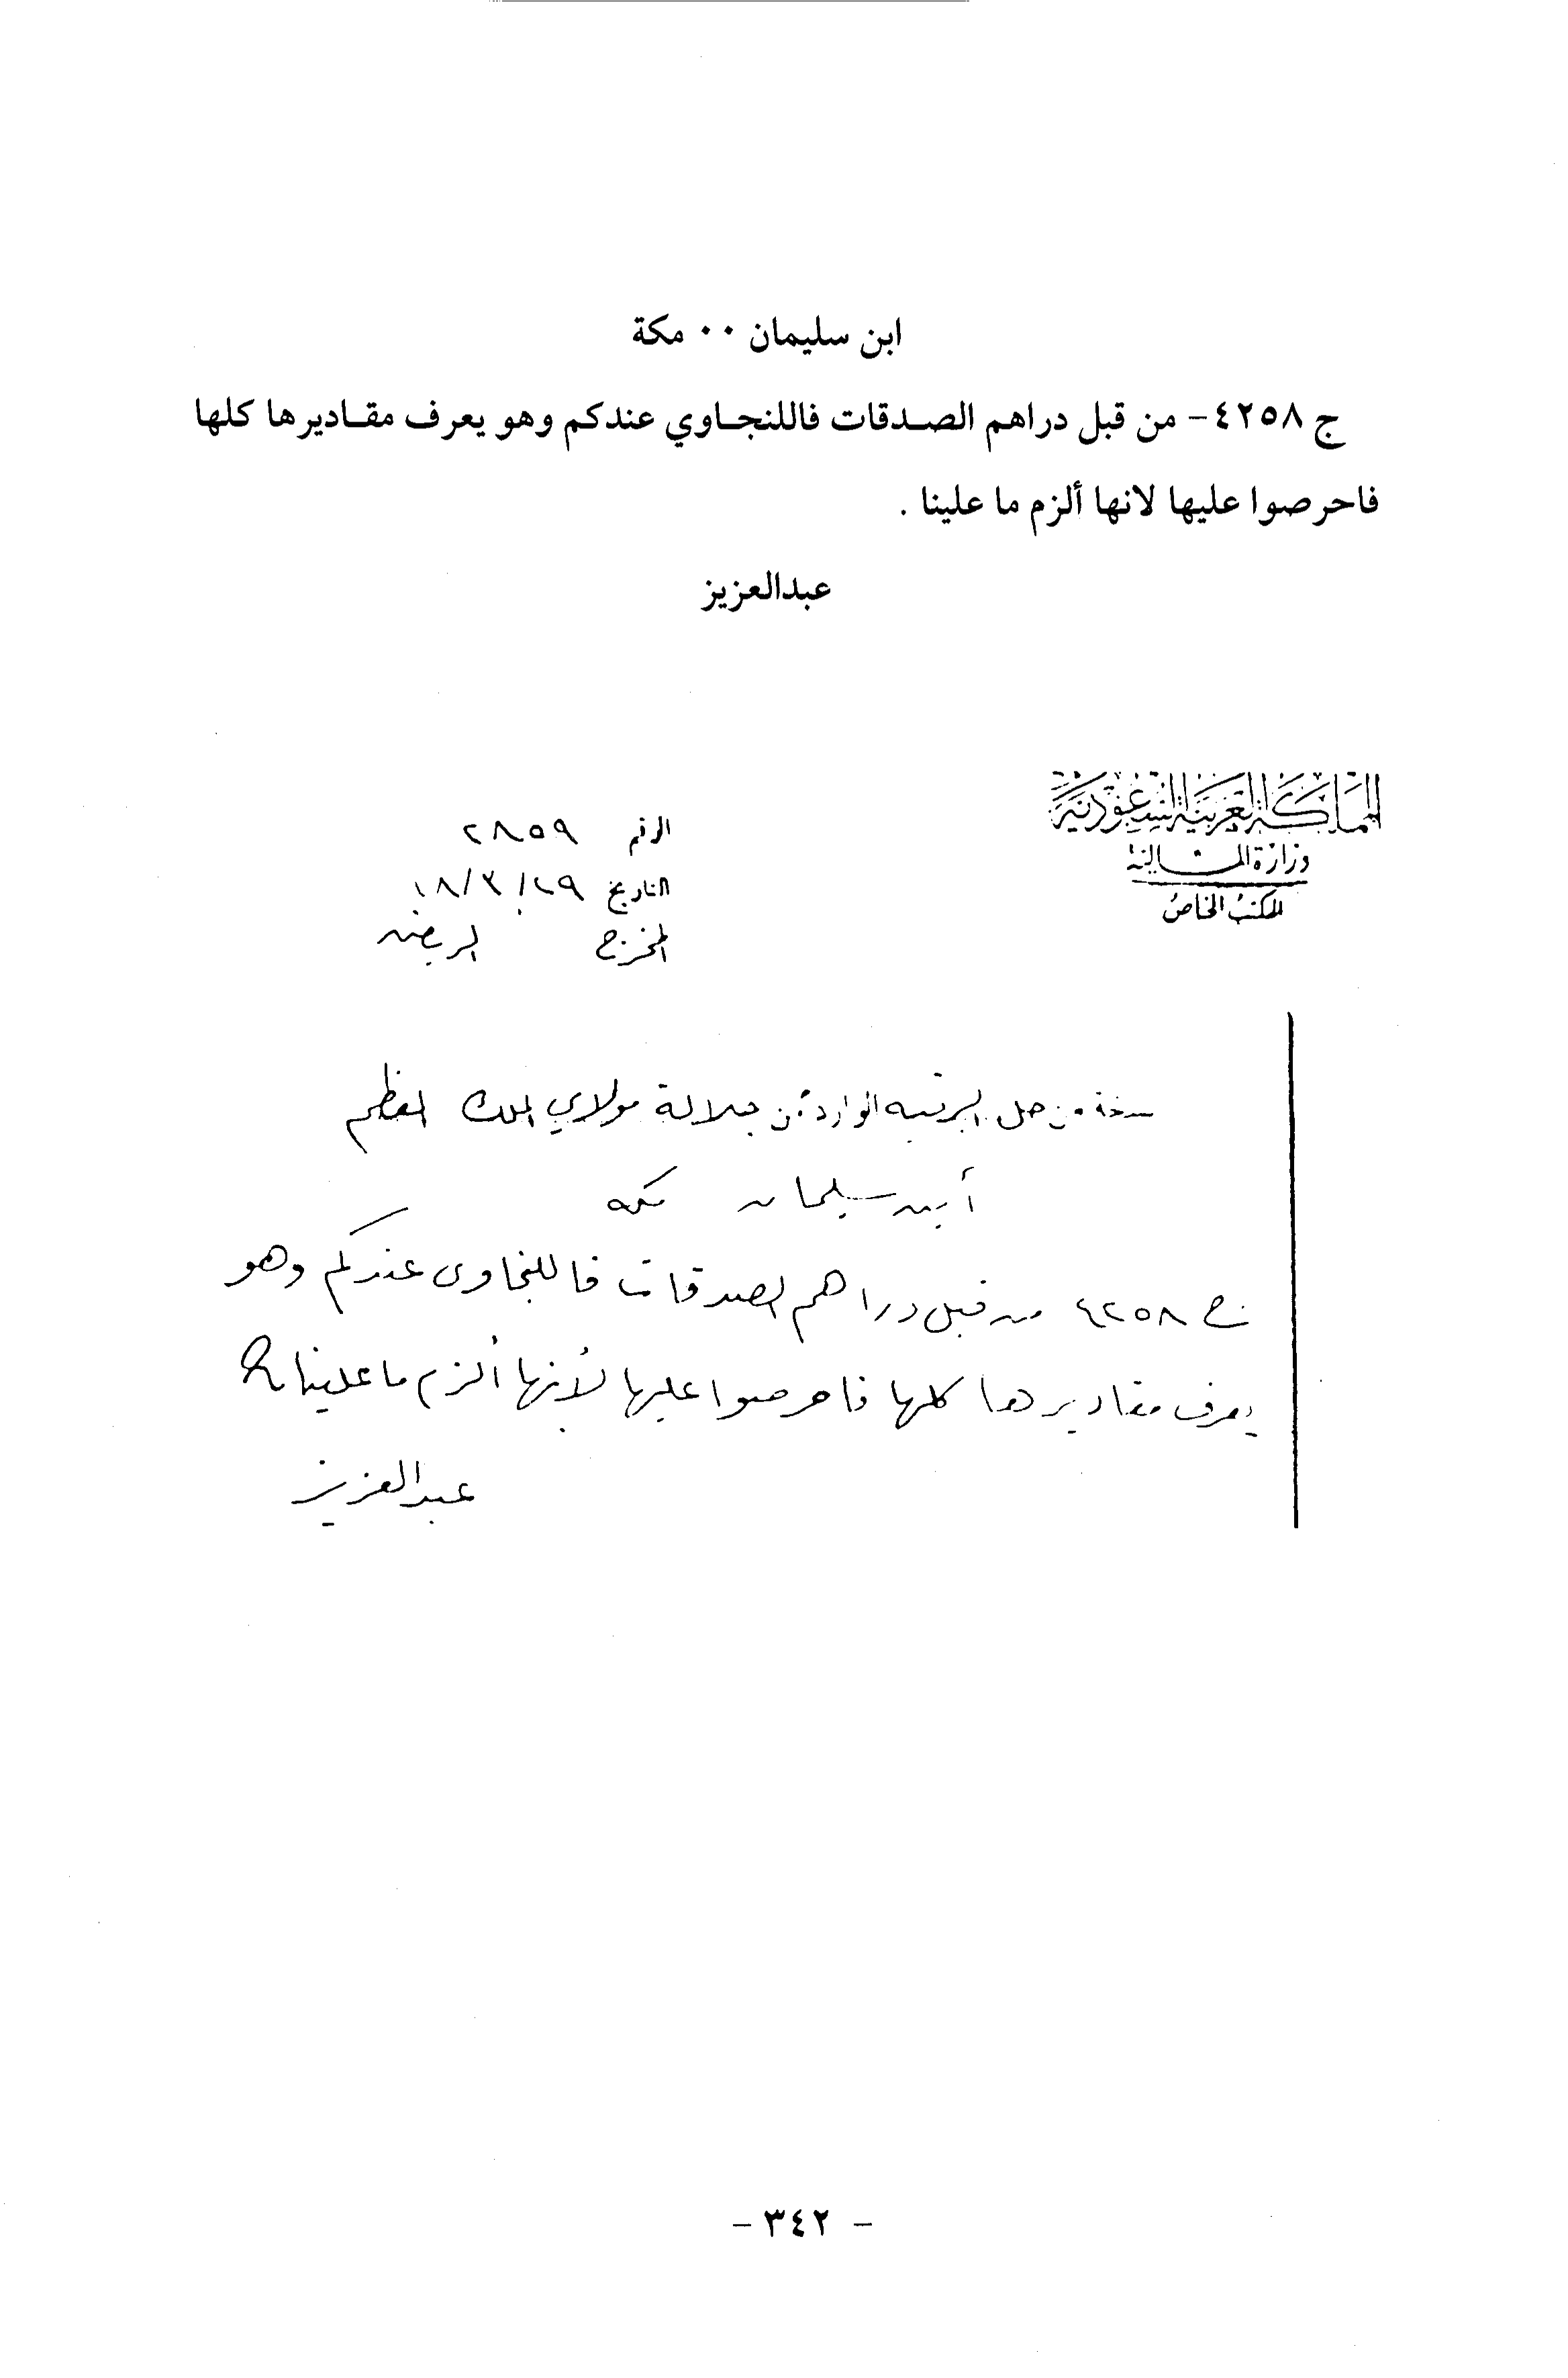 ابن سليمان ٠٠ مكة
ج ٤٢٥٨- من قبل دراهم الصدقات فاللنجاوي عندكم وهو يعرف مقاديرها كلها
فاحرصوا عليها لانها ألزم ما علينا .
عبدالعزيز
المملكة العربية السعودية
وزارة المالية
المكتب الخاص
الرقم ٢٨٥٩
التاريخ ١٨/٣/٢٩
المخرج
نسخة من حل البرقية الواردة من جلالة مولاي الملك المعظم
أبن سليمان مكه
ج ٤٢٥٨ من قبل دراهم الصدقات فاللنجاوى عندكم وهو
يعرف مقاديرها كلها فاحرصوا عليها لأنها ألزم ما علينا
عبدالعزيز
- ٣٤٢ -